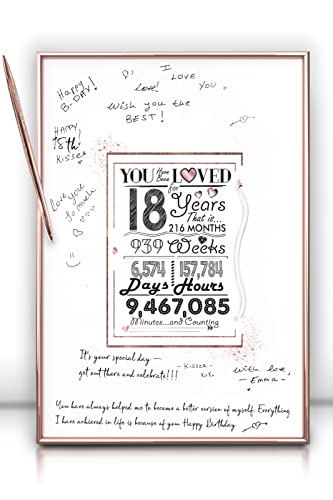 Happy
B-DAY!
I LOVE
love! YOU
Wish you the
BEST!
HAPPY
18th!
Kisses
Love you
So much
YOU Have Been LOVED
for
18 Years
That is...
216 MONTHS
939 Weeks
6,574 157,784
Days Hours
9,467,085
Minutes...and Counting
It's your special day —
get out there and celebrate!!!
- Kisses -
With love,
- Emma -
You have always helped me to become a better version of myself. Everything
I have achieved in life is because of you Happy Birthday